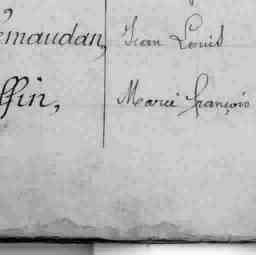 emaudan, Jean Louis
ffin, Marie françois